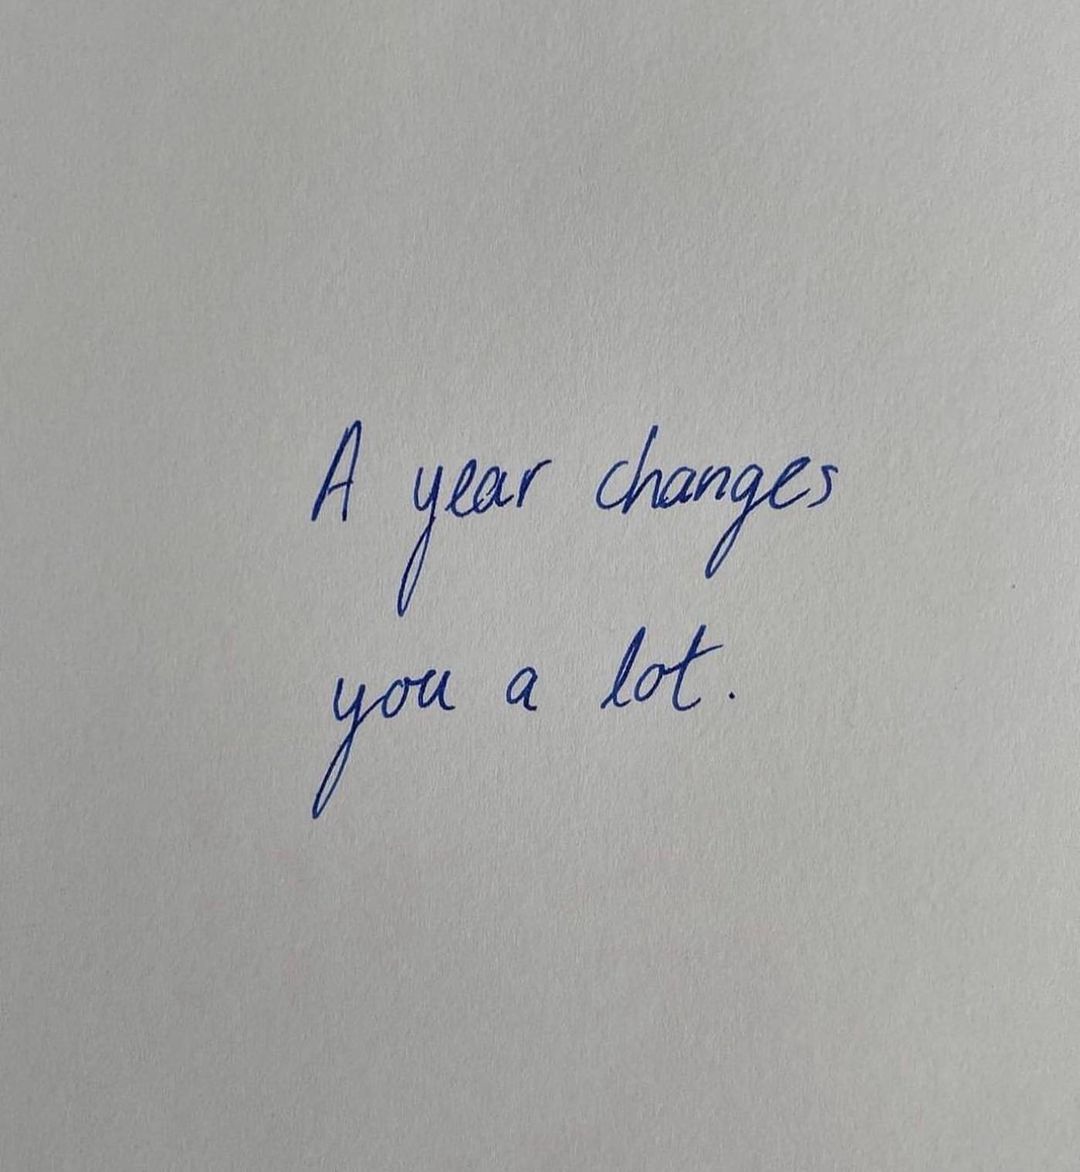 A year changes
you a lot.